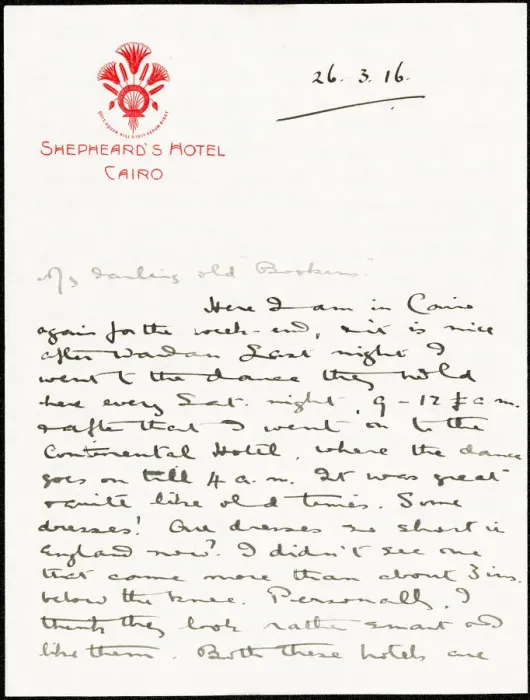 26. 3. 16.
SHEPHEARD'S HOTEL
CAIRO
My darling old "Bookems"
Here I am in Cairo
again for the week-end, & it is nice
after Wardan Last night I
went to the dance they hold
here every Sat. night, 9 - 12 a.m.
& after that I went on to the
Continental Hotel, where the dance
goes on till 4 a.m. It was great
& quite like old times. Some
dresses! Are dresses so short in
England now? I didn't see one
that came more than about 3 ins.
below the knee. Personally, I
think they look rather smart and
like them. Both these hotels are